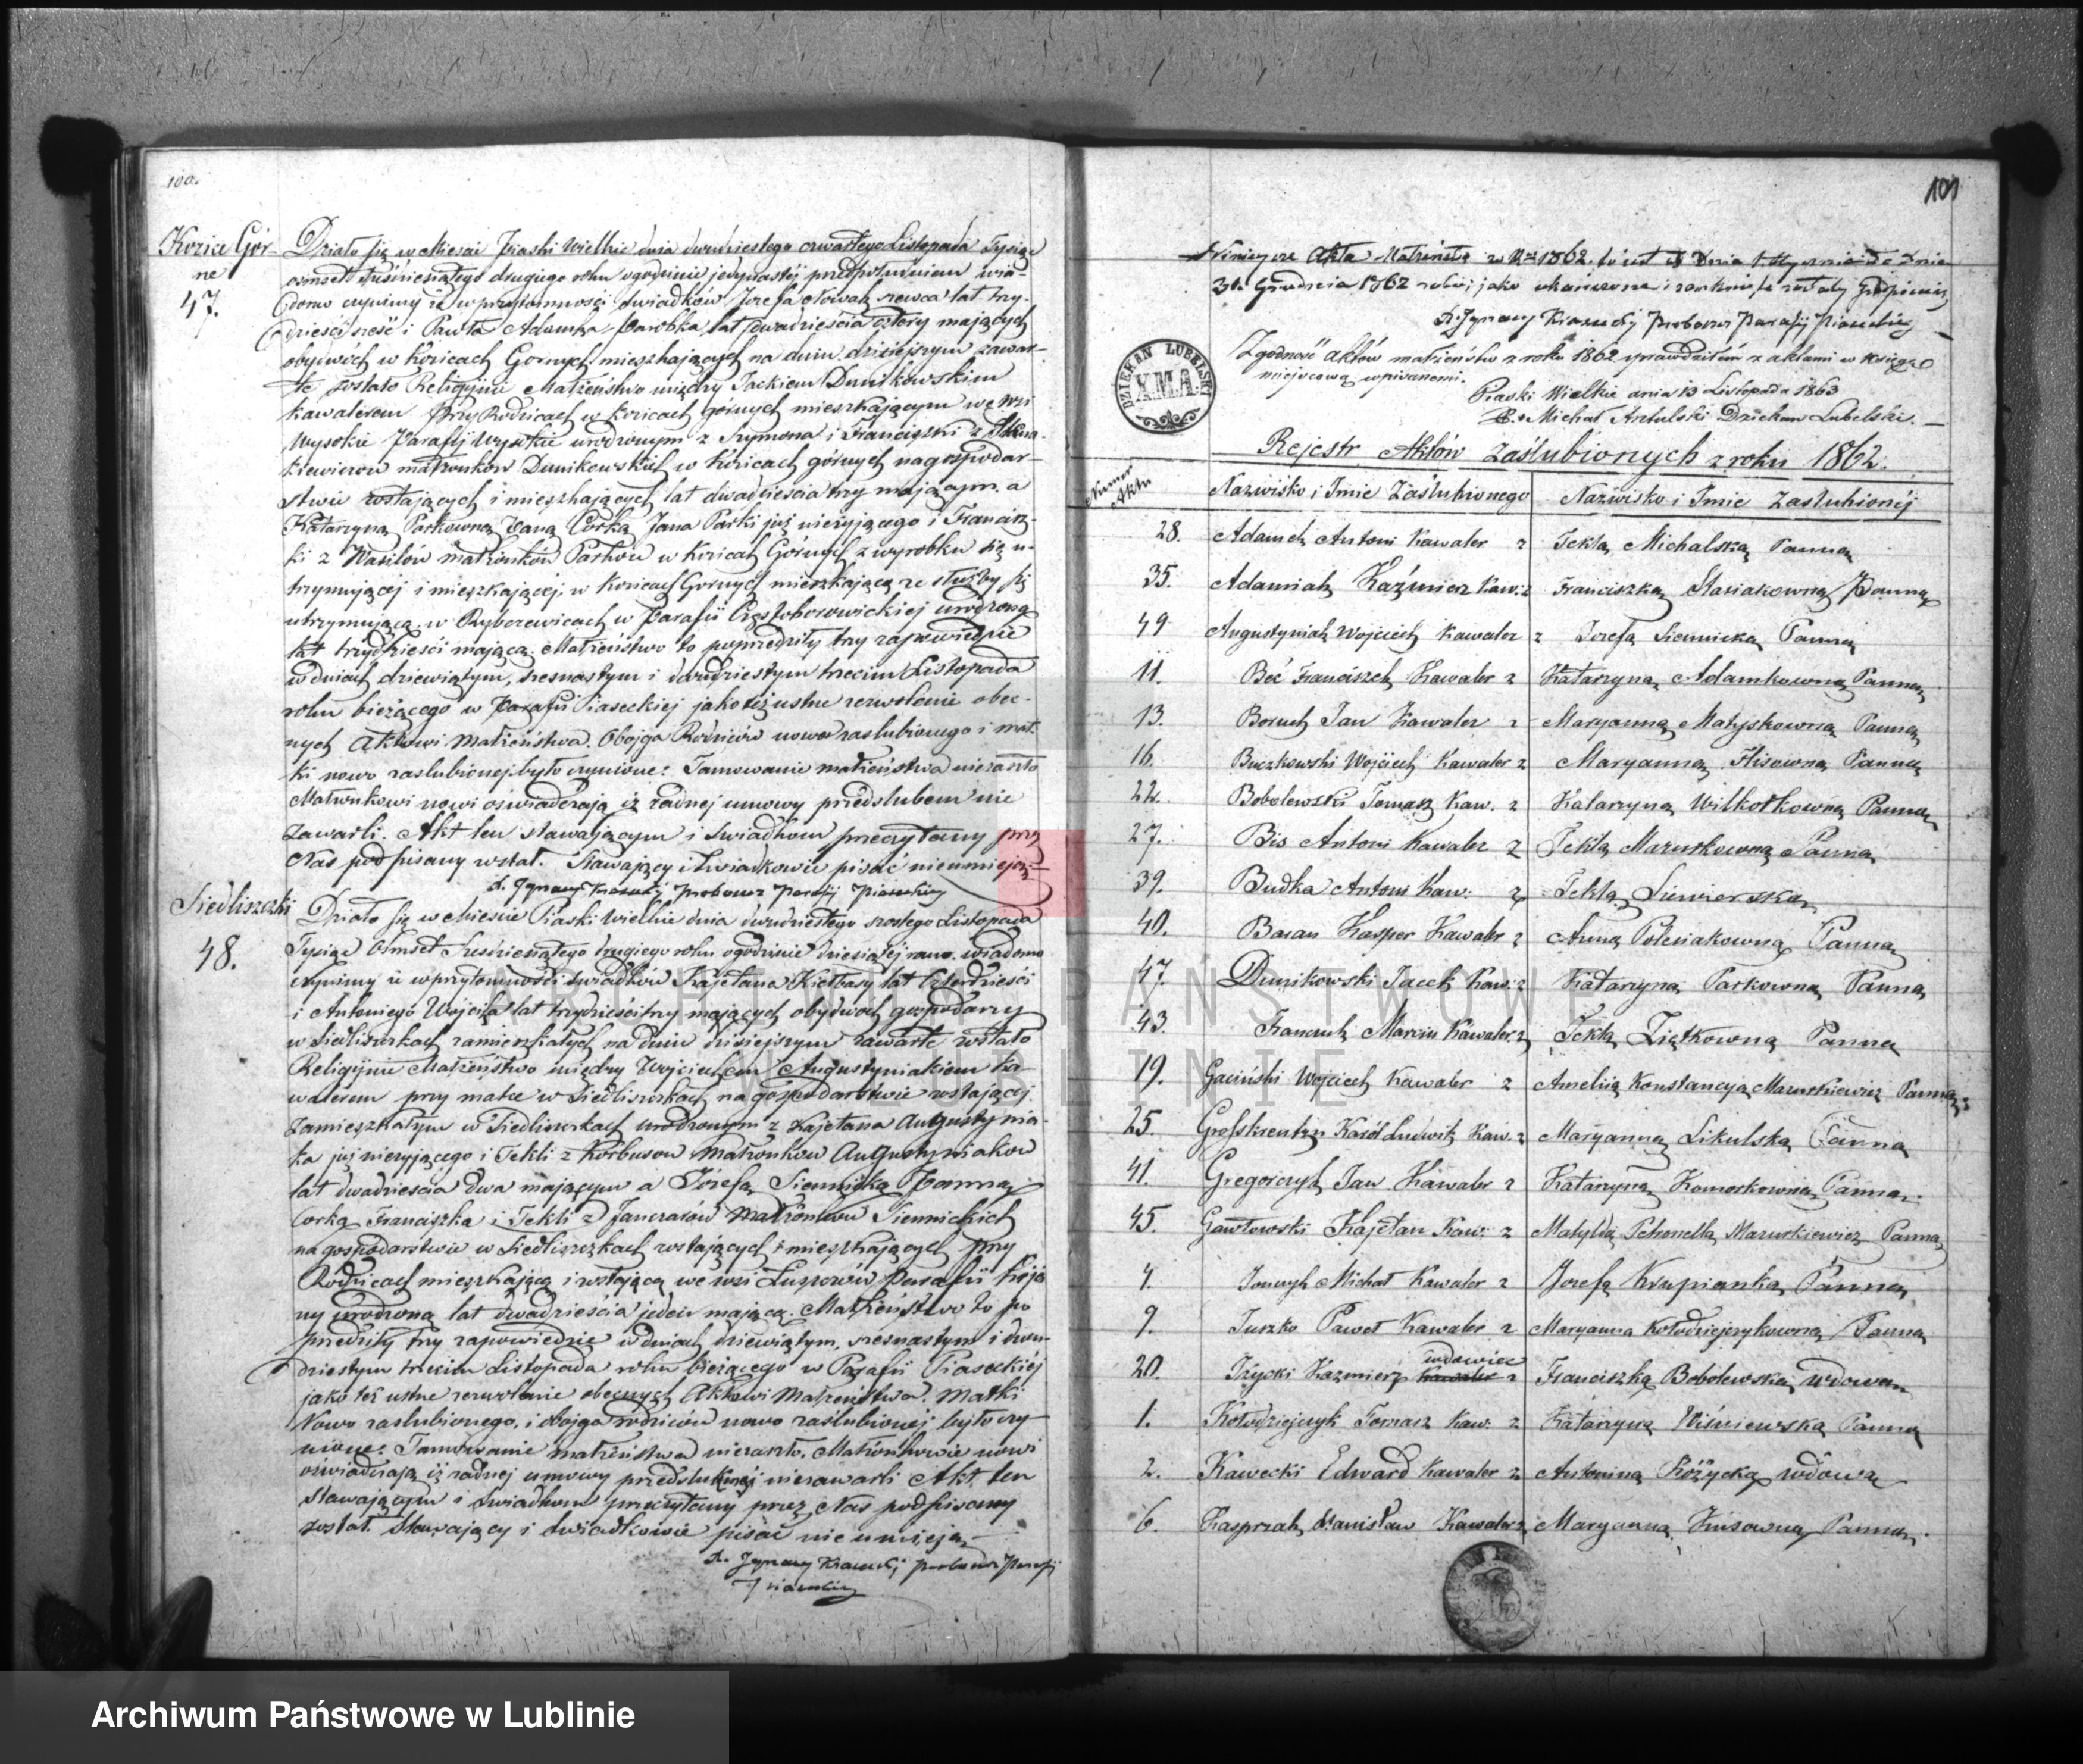 100.
Kozice Gór-
ne
47.
Działo się w Mieście Piaski Wielkie dnia dwudziestego czwartego Listopada Tysiąc
ośmset sześćdziesiątego drugiego roku o godzinie jedynastej przed południem wia-
domo czynimy iż w przytomności świadków Jozefa Nowak szewca lat trzy-
dzieści sześć i Pawła Adamka, parobka lat dwadzieścia cztery mających
obydwóch w Kozicach Gornych mieszkających na dniu dzisiejszym zawar-
te zostało Religijne Małżeństwo między Jackiem Dunikowskim
kawalerem przy Rodzicach w Kozicach górnych mieszkającym we Wsi
Wysokie Parafij Wysokie urodzonym z Szymona i Franciszki z
małżonków Dunikowskich w Kozicach górnych na gospodar-
stwie zostających i mieszkających lat dwadzieścia trzy mającym a
Katarzyną Parkowną Panną Corką Jana Parki już nieżyjącego i Francisz-
ki z Wasilów małżonków Parków w Kozicach Górnych z wyrobku się u-
trzymującej i mieszkającej, w Kozicach Gornych mieszkającą ze służby się
utrzymującą w Rybczewicach w Parafii Częstoborowickiej urodzoną
lat trzydzieści mającą. Małżeństwo to poprzedziły trzy zapowiedzie
w dniach dziewiątym, szesnastym i dwudziestym trzecim Listopada
roku bieżącego w Parafii Piaseckiej jako też ustne zezwolenie obec-
nych Aktowi Małżeństwa. Obojga Rodziców nowo zaslubionego i mat-
ki nowo zaslubionej było czynione: Tamowanie małżeństwa niezaszło
Małżonkowi nowi oświadczają iż żadnej umowy przedslubem nie
zawarli. Akt ten stawającym i świadkom przeczytany przez
Nas podpisany został. Stawający i świadkowie pisać nieumieją
X. Ignacy Krasucki Proboszcz Parafij Piaseckiej
Siedliszczki
48.
Działo się w Mieście Piaski Wielkie dnia dwudziestego szostego Listopada
Tysiąc Ośmset Sześćdziesiątego drugiego roku o godzinie dziesiątej rano. wiadomo
czynimy iż w przytomności świadków Kajetana Kiełbasy lat Czterdzieści
i Antoniego Wojcika lat trzydzieści trzy mających obydwoch gospodarzy
w Siedliszczkach zamieszkałych na dniu dzisiejszym zawarte zostało
Religijne Małżeństwo między Wojciechem Augustyniakiem Ka-
walerem przy matce w Siedliszczkach na gospodarstwie zostającej.
Zamieszkałym w Siedliszczkach urodzonym z Kajetana Augustynia-
ka już nieżyjącego i Tekli z Korbusow Małżonkow Augustyniakow
lat dwadzieścia dwa mającym a Józefą Siennicką Panną
Corką Franciszka i Tekli z Janczarów Małżonkow Siennickich
na gospodarstwie w Siedliszczkach zostających i mieszkających przy
Rodzicach mieszkającą i zostającą we wsi Łuszczów Parafii Kija
ny urodzoną lat dwadzieścia jeden mającą. Małżeństwo to po
przedziły trzy zapowiedzie w dniach dziewiątym, szesnastym i dwu-
dziestym trzecim Listopada roku bieżącego w Parafii Piaseckiej
jako też ustne zezwolenie obecnych Aktowi Małżeństwa. Matki
Nowo zaslubionego, i obojga rodziców nowo zaślubionej było czy-
nione: Tamowanie małżeństwa niezaszło. Małżonkowie nowi
oświadczają iż żadnej umowy przedslubnej niezawarli Akt ten
Stawającym i świadkom przeczytany przez Nas podpisany
został. Stawający i świadkowie pisać nie umieją
X. Ignacy Krasucki Proboszcz Parafij
Piaseckiej
101
Niniejsze Akta Małżeństw w Rku 1862. to jest od Dnia 1 Stycznia do Dnia
31. Grudnia 1862 roku jako ukończone i zamknięte zostały
X. Ignacy Krasucki Proboszcz Parafij Piaseckiej
DZIEKAN LUBELSKI
X.M.A.
Zgodność aktów małżeństw z roku 1862 sprawdziłem z aktami w księgę
miejscową wpisanemi.
Piaski Wielkie dnia 13 Listopada 1863
X. Michał Dziekan Lubelski.
Rejestr Aktów Zaślubionych z roku 1862.
Numer Aktu
Nazwisko i Imie Zaślubionego Nazwisko i Imie Zaslubionéj
28. Adamek Antoni Kawaler z Teklą Michalską Panną
35. Adamiak Kaźmierz Kaw. z Franciszką Stasiakowną Panną
49 Augustyniak Wojciech Kawaler z Jozefą Siennicką Panną
11. Beć Franciszek Kawaler z Katarzyną Adamkowną Panną
13. Boruch Jan Kawaler z Maryanną Matyskowną Panną
16. Buczkowski Wojciech Kawaler z Maryanną Hisowną Panną
22. Bobolewski Tomasz Kaw. z Katarzyną Wilkołkowną Panną
27. Bis Antoni Kawaler z Teklą Mazurkowną Panną
39. Budka Antoni Kaw: z Teklą Siewierską
40. Baran Kasper Kawaler z Anną Polesiakowną Panną
47. Dunikowski Jacek Kaw: z Katarzyną Parkowną Panną
43. Franczuk Marcin Kawaler z Teklą Ziętkowną Panną
19. Gaciński Wojciech Kawaler z Amelią Konstancyą Mazurkiewicz Panną
25. Karól Ludwik Kaw. z Maryanną Sikulską Panną
41. Gregorczyk Jan Kawaler z Katarzyną Komorkowną Panną
45. Gawłowski Kajetan Kaw: z Matyldą Petronellą Mazurkiewicz Panną
4. Michał Kawaler z Jozefą Krupianką Panną
9. Juszko Paweł Kawaler z Maryanna Kołodziejczykowną Panną
20. Iżycki Kazmierz wdowiec z Franciszką Bobolewską wdową
1. Kołodziejczyk Tomasz Kaw: z Katarzyną Wiśniewską Panną
2. Kawecki Edward Kawaler z Antoniną Różycką wdową
6. Kasprzak Stanisław Kawaler z Maryanną Panną
ARCHIWUM PAŃSTWOWE
W LUBLINIE
Archiwum Państwowe w Lublinie